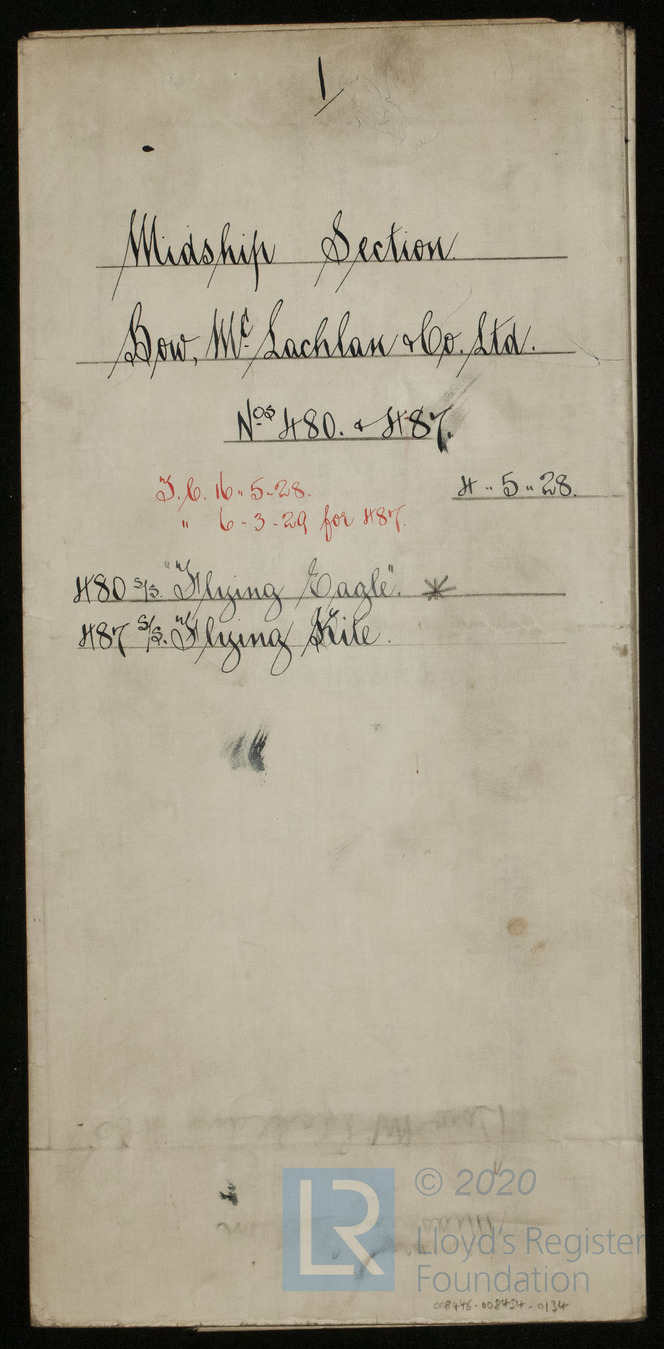 1/
Midship Section
Bow, Mc Lachlan & Co. Ltd.
Nos 480. & 487.
4 " 5 " 28.
F.C. 16 " 5 - 28.
" 6 - 3 - 29 for 487.
480 S/S. "Flying Eagle". *
487 S/S. "Flying Kite".
LR
© 2020
Lloyd's Register
Foundation
008446-008454-0134